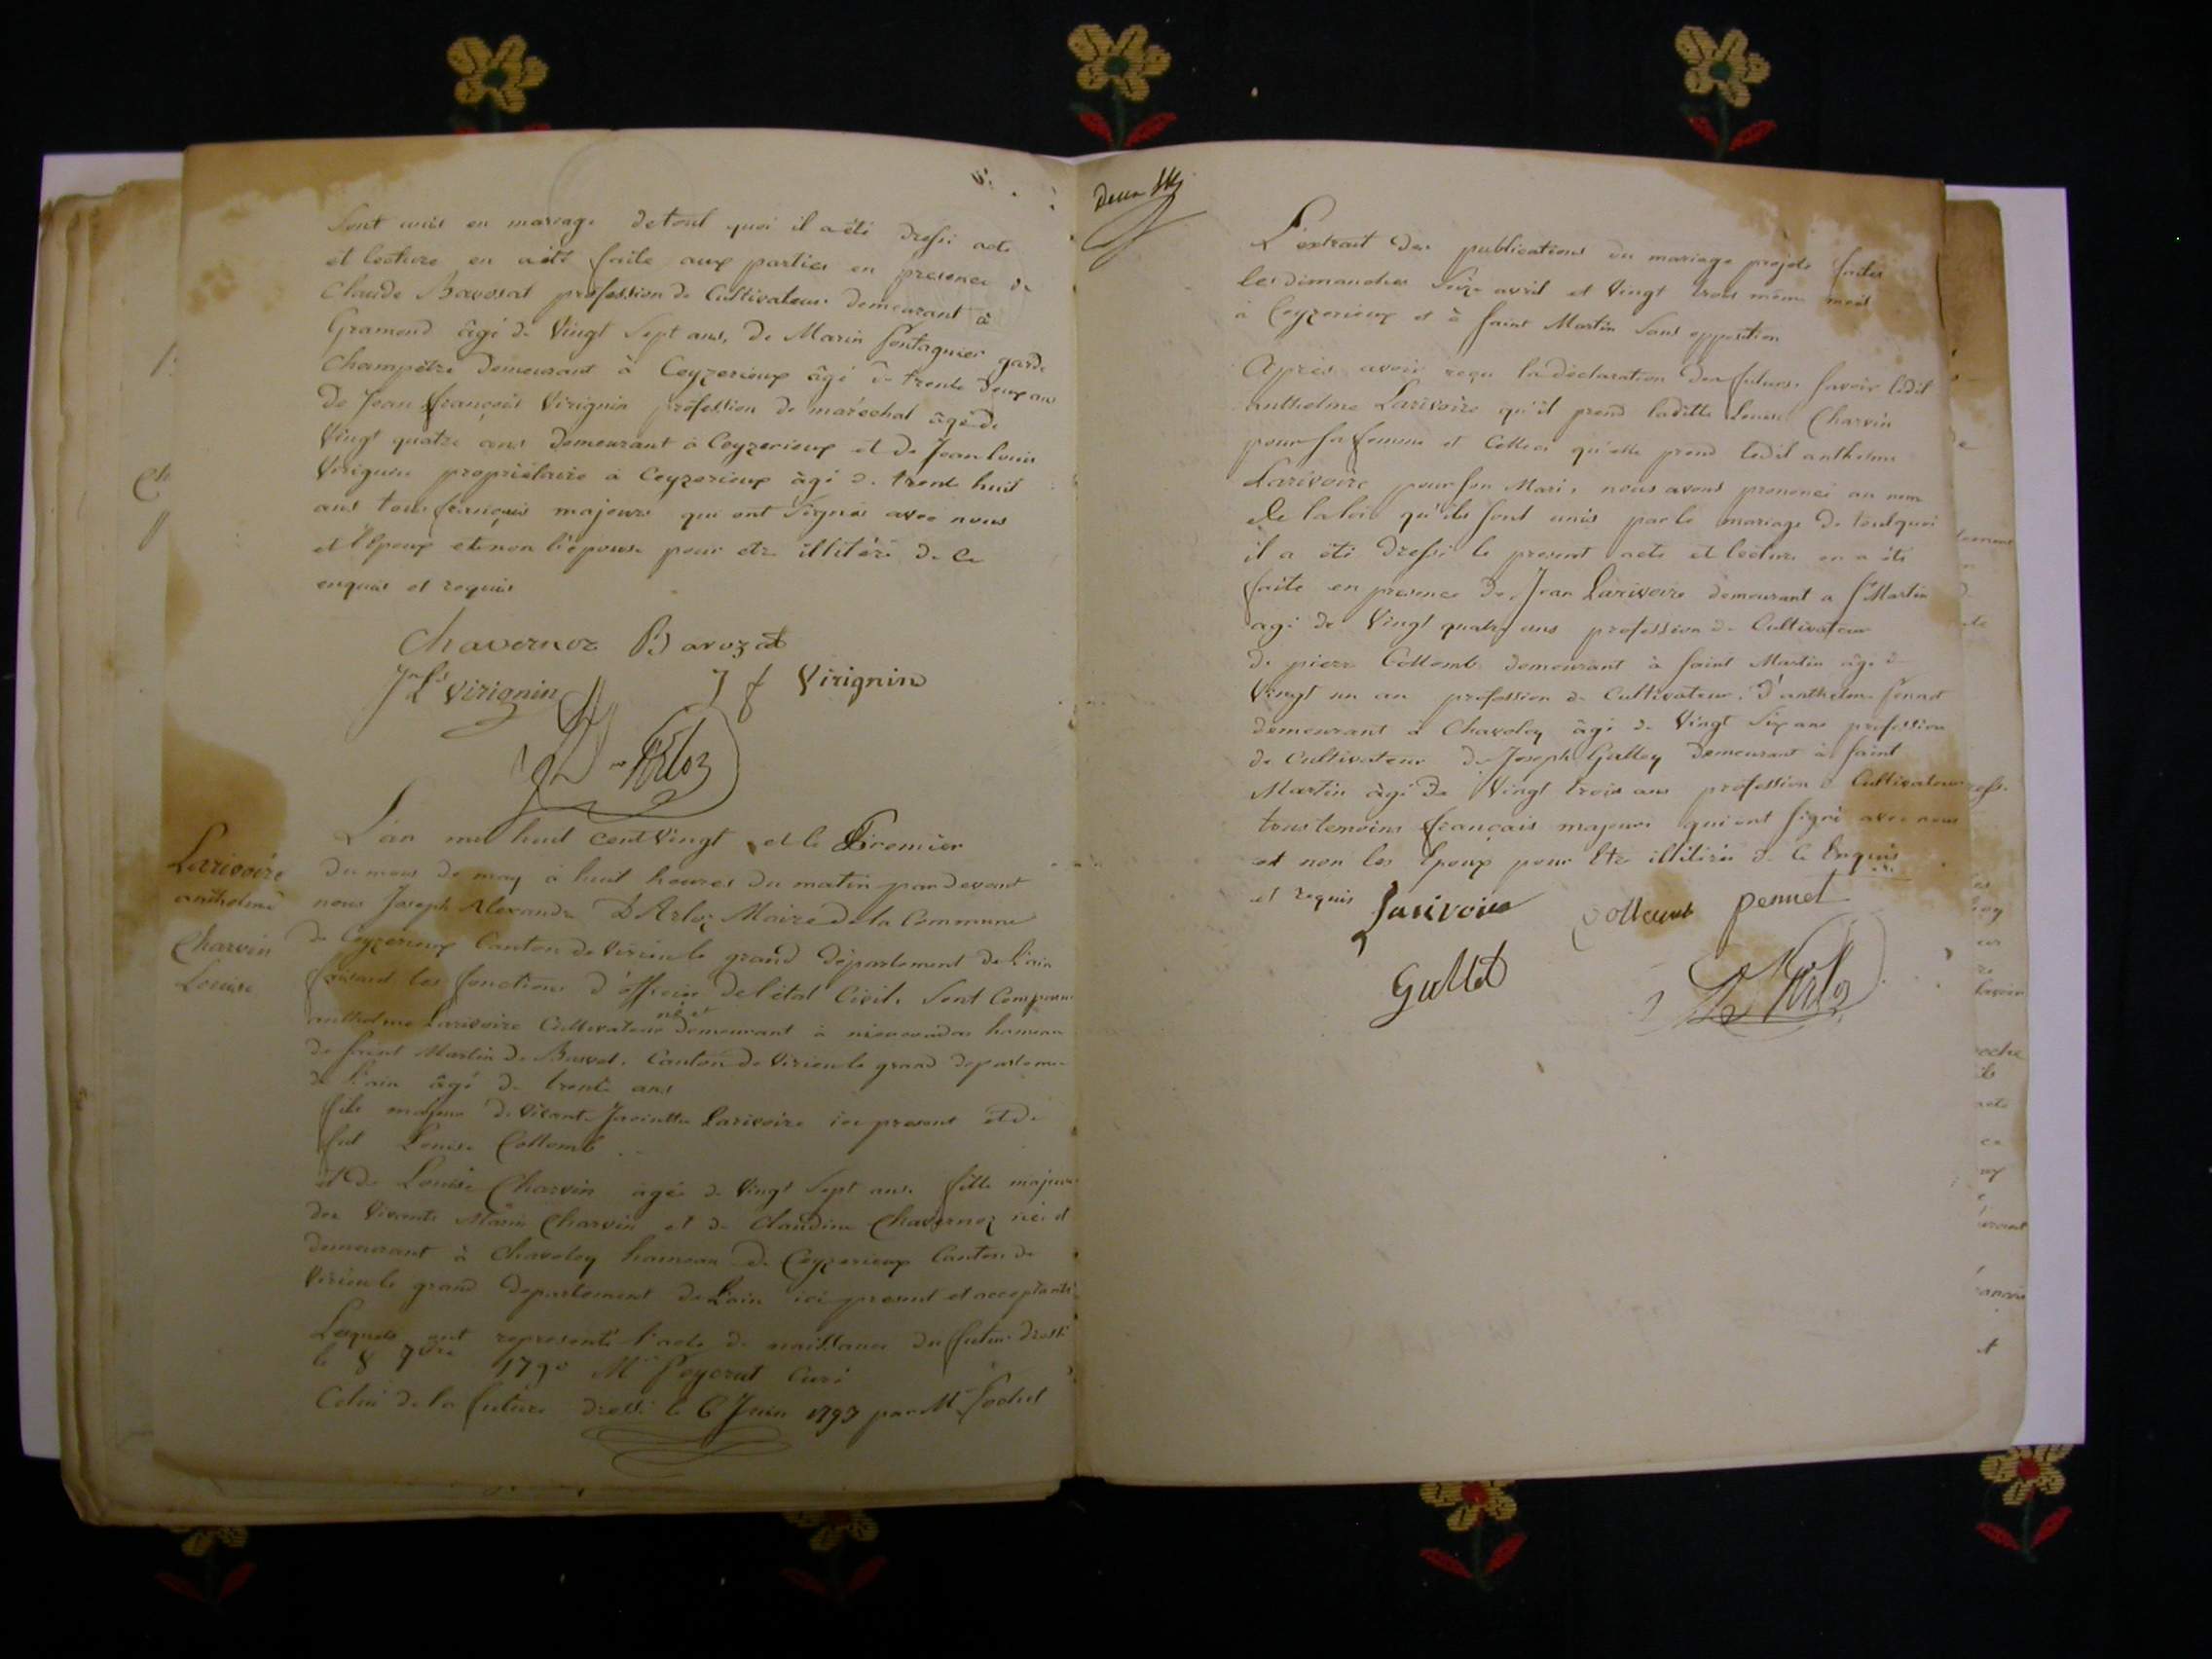 Sont unis en mariage de tout quoi il a été dressé acte
et lecture en a été faite aux parties en presence de
Claude Bavosat profession de Cultivateur demeurant à
Gramond âgé de Vingt Sept ans, de Marin fontagnier garde
Champêtre demeurant à Ceyzerieux âgé de trente deux ans
de Jean françois Virignin profession de maréchal âgé de
Vingt quatre ans demeurant à Ceyzerieux et de Jean louis
Virignin propriétaire à Ceyzerieux âgé de trente huit
ans tous français majeurs qui ont Signés avec nous
et l'Epoux et non l'épouse pour etre illitéré de ce
enquis et requis
Chavernoz Bavozat
Virignin J f Virignin
D'Arloz
Larivoire
anthelme
Charvin
Louise
L'an mil huit cent Vingt et le Premier
du mois de may à huit heures du matin par devant
nous Joseph Alexandre D'Arloz Maire de la Commune
de Ceyzerieux Canton de Virieu le grand département de l'ain
faisant les fonctions d'officier de l'état Civil, Sont Comparus
né et
anthelme Larivoire Cultivateur demeurant à hameau
de Saint Martin de Bavel, Canton de Virieu le grand departement
de l'ain âgé de trente ans
fils majeur de vivant Larivoire ici present et de
fut Louise Collomb
et de Louise Charvin agée de Vingt Sept ans fille majeure
des Vivants Marin Charvin et de Claudine Chavernoz née et
demeurant à Chavoley hameau de Ceyzerieux Canton de
Virieu le grand departement de L'ain ici present et acceptants
Lesquels ont representé l'acte de naissance du futur dressé
le 8 7bre 1790 Mr Curé
Celui de la future dressé le 6 Juin 1793 par Mr
L'extrait des publications du mariage projeté faites
les dimanches Seize avril et Vingt trois même mois
à Ceyzerieux et à Saint Martin Sans opposition
Après avoir reçu la déclaration des futurs, Savoir ledit
anthelme Larivoire qu'il prend laditte Louise Charvin
pour sa femme et Celle ci qu'elle prend ledit anthelme
Larivoire pour son Mari, nous avons prononcé au nom
de la loi qu'ils sont unis par le mariage de tout quoi
il a été dressé le present acte et lecture en a été
faite en presence de Jean Larivoire demeurant a St Martin
agé de Vingt quatre ans profession de Cultivateur
de pierre Collomb demeurant à Saint Martin âgé de
Vingt un an profession de Cultivateur, d'anthelme
demeurant à Chavoley âgé de Vingt Six ans profession
de Cultivateur de Joseph Gulley demeurant à Saint
Martin âgé de Vingt trois ans profession Cultivateur
tous temoins français majeurs qui ont signé avec nous
et non les Epoux pour Etre illitérés de ce Enquis
et requis Larivoire Collomb pennet
Gullet D'Arloz